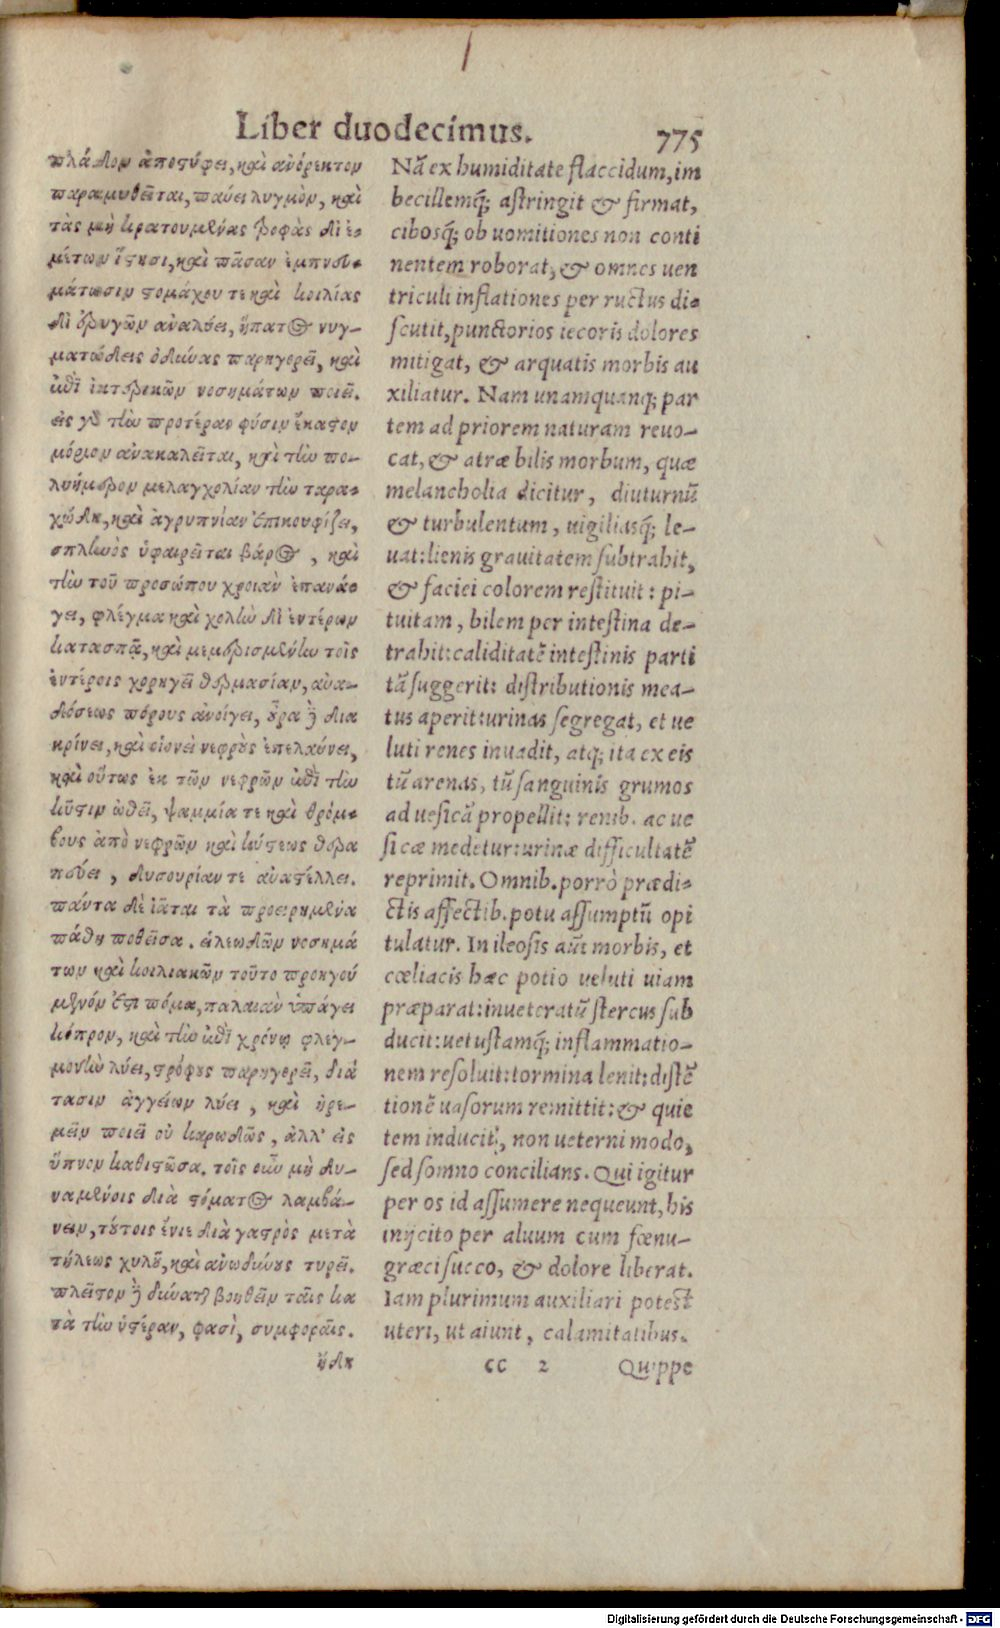 Liber duodecimus. 775
πλάδον ἀποστύφει, καὶ ἀνόρεκτον
παραμυθεῖται, παύει λυγμὸν, καὶ
τὰς μὴ κρατουμένας τροφὰς δι' ἐ-
μέτων ἵστησι, καὶ πᾶσαν ἐμπνευ-
μάτωσιν στομάχου τε καὶ κοιλίας
δι' ἐρυγῶν ἀναλύει, ἥπατος νυγ-
ματώδεις ὀδύνας παρηγορεῖ, καὶ
ἐπὶ ἰκτερικῶν νοσημάτων ποιεῖ.
εἰς γὰρ τὴν προτέραν φύσιν ἕκαστον
μόριον ἀνακαλεῖται, καὶ τὴν πο-
λυήμερον μελαγχολίαν τὴν ταρα-
χώδη, καὶ ἀγρυπνίαν ἐπικουφίζει,
σπληνὸς ὑφαιρεῖται βάρος, καὶ
τὴν τοῦ προσώπου χροιὰν ἐπανά-
γει, φλέγμα καὶ χολὴν δι' ἐντέρων
κατασπᾷ, καὶ μεμερισμένην τοῖς
ἐντέροις χορηγεῖ θερμασίαν, ἀνα-
δόσεως πόρους ἀνοίγει, οὖρα δὲ δια
κρίνει, καὶ οἱονεὶ νεφροὺς ἐπελαύνει,
καὶ οὕτως ἐκ τῶν νεφρῶν ἐπὶ τὴν
κύστιν ὠθεῖ, ψαμμία τε καὶ θρόμ-
βους ἀπὸ νεφρῶν καὶ κύστεως θερα
πεύει, δυσουρίαν τε ἀναστέλλει.
πάντα δὲ ἰᾶται τὰ προειρημένα
πάθη ποθεῖσα. εἰλεωδῶν νοσημά
των καὶ κοιλιακῶν τοῦτο προηγού
μενόν ἐστι πόμα, παλαιὰν ὑπάγει
κόπρον, καὶ τὴν ἐπὶ χρόνῳ φλεγ-
μονὴν λύει, στρόφους παρηγορεῖ, διά
τασιν ἀγγείων λύει, καὶ ἠρε-
μεῖν ποιεῖ οὐ καρωδῶς, ἀλλ' εἰς
ὕπνον καθιστῶσα. τοῖς οὖν μὴ δυ-
ναμένοις διὰ στόματος λαμβά-
νειν, τούτοις ἔνιε διὰ γαστρὸς μετὰ
τήλεως χυλοῦ, καὶ ἀνωδύνους τηρεῖ.
πλεῖστον δὲ δύναται βοηθεῖν ταῖς κα
τὰ τὴν ὑστέραν, φασὶ, συμφοραῖς.
ἤδη
Nã ex humiditate flaccidum, im
becillemq́; astringit & firmat,
cibosq́; ob uomitiones non conti
nentem roborat, & omnes uen
triculi inflationes per ructus di-
scutit, punctorios iecoris dolores
mitigat, & arquatis morbis au
xiliatur. Nam unamquanq; par
tem ad priorem naturam reuo-
cat, & atræ bilis morbum, quæ
melancholia dicitur, diuturnũ
& turbulentum, uigiliasq́; le-
uat: lienis grauitatem subtrahit,
& faciei colorem restituit: pi-
tuitam, bilem per intestina de-
trahit: caliditatẽ intestinis parti
tã suggerit: distributionis mea-
tus aperit: urinas segregat, et ue
luti renes inuadit, atq; ita ex eis
tũ arenas, tũ sanguinis grumos
ad uesicã propellit: renib. ac ue
sicæ medetur: urinæ difficultatẽ
reprimit. Omnib. porrò prædi-
ctis affectib. potu assumptũ opi
tulatur. In ileosis aũt morbis, et
cœliacis hæc potio ueluti uiam
præparat: inueteratũ stercus sub
ducit: uetustamq́; inflammatio-
nem resoluit: tormina lenit: distẽ
tionẽ uasorum remittit: & quie
tem inducit, non ueterni modo,
sed somno concilians. Qui igitur
per os id assumere nequeunt, his
inijcito per aluum cum fœnu-
græci succo, & dolore liberat.
Iam plurimum auxiliari potest
uteri, ut aiunt, calamitatibus.
cc 2 Quippe
Digitalisierung gefördert durch die Deutsche Forschungsgemeinschaft - DFG